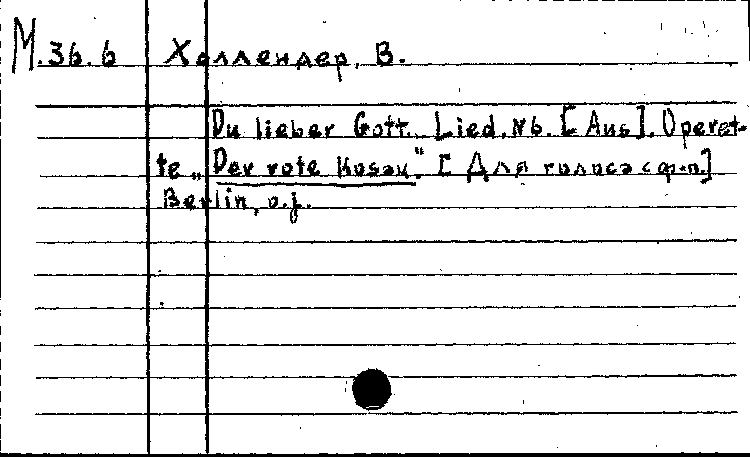 М.36.6 Холлендер, В.
Du lieber Gott... Lied. №6. [Aus]. Operet-
te „Der rote Kosak". [Для голоса с ф-п.]
Berlin, o.j.